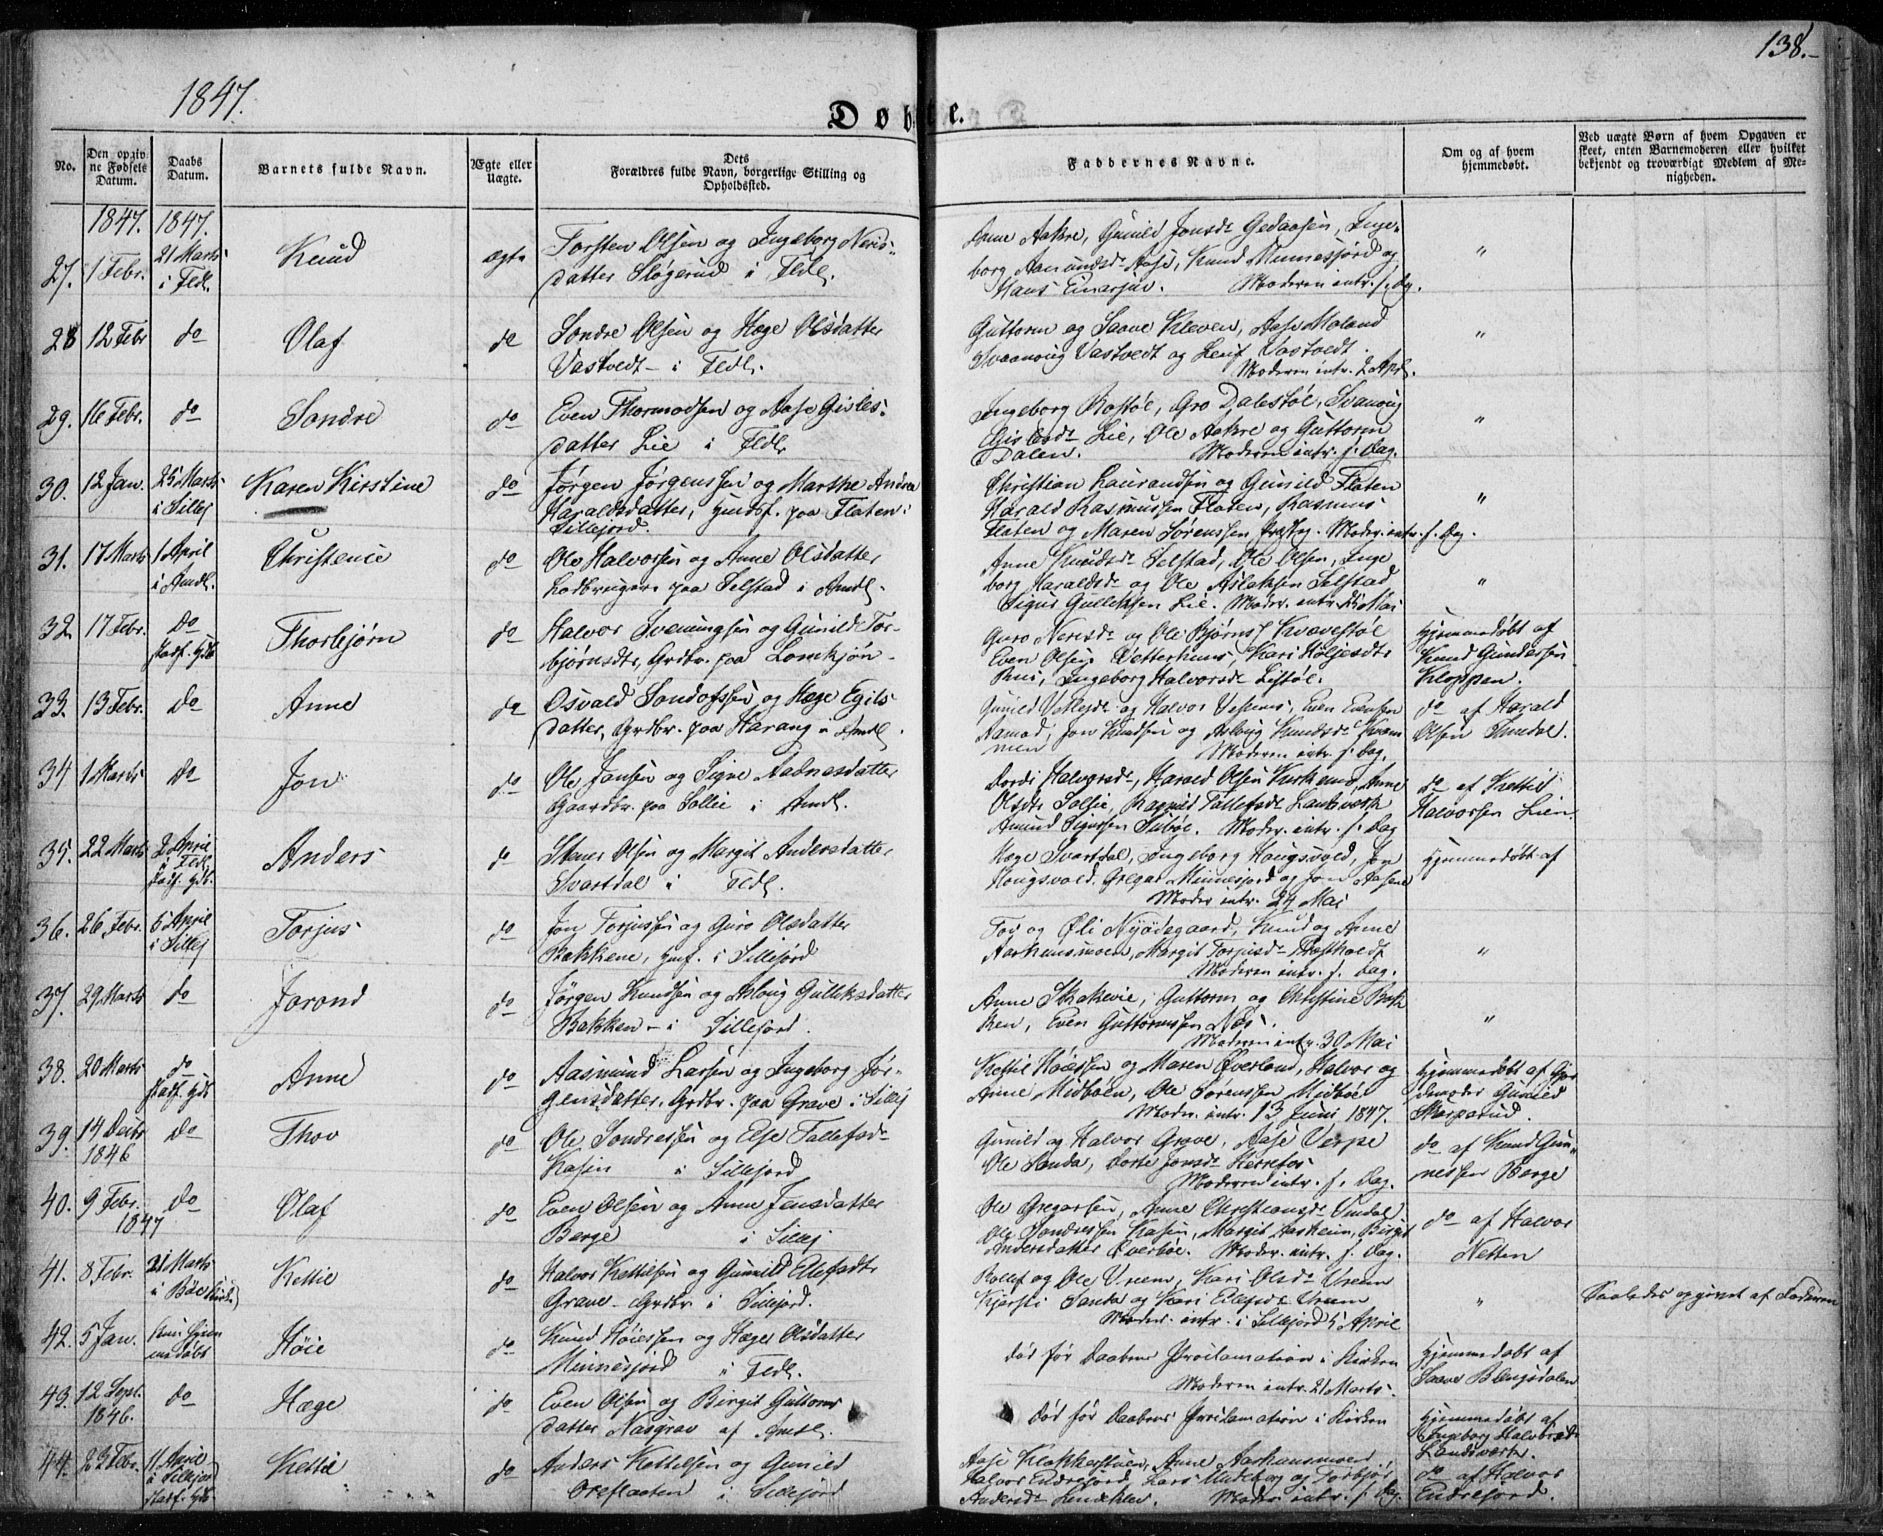 138.
1847.
Døbte.
No.
Den opgivne Fødsels Datum.
Daabs Datum.
Barnets fulde Navn.
Ægte eller Uægte.
Dets
Forældres fulde Navn, borgerlige Stilling og
Opholdssted.
Faddernes Navne.
Om og af hvem
hjemmedøbt.
Ved uægte Børn af hvem Opgaven er
skeet, enten Barnemoderen eller hvilket
bekjendt og troværdigt Medlem af Me-
nigheden.
1847. 1847.
27. 1 Febr. 21 Marts i Fldl. Knud ægte Torsten Olsen og Ingeborg Neris-
datter Sløgerud i Fldl.
Anne Aakre, Gunild Jonsdr Inge-
borg Aamundsdr Aase, Knud Minnesjord og
Hans Moderen intr. s. Dag. "
28 12 Febr do Olaf do Sondre Olsen og Hæge Olsdatter
Vastvedt i Fldl.
Guttorm og Saave Kleven, Aase Moland
Svaanoug Vastvedt og Leif Vastvedt.
Moderen intr. 2 Apl. "
29. 16 Febr. do Sondre do Even Thormodsen og Aase Gisles-
datter Lie i Fldl
Ingeborg Rostøl, Gro Dalestøl, Svanoug
Gislesdr Lie, Ole Aakre og Guttorm
Dalen. Moderen intr. s. Dag. "
30. 12 Jan. 25 Marts i Sillej Karen Kirstine do Jørgen Jørgenssen og Marthe Andrea
Haraldsdatter, Huusf. paa Flaten i
Sillejord.
Christian Laurandsen og Gunild Flaten
Harald Rasmussen Flaten, Rasmus
Flaten og Maren Sørenssen Moder. intr. s. Dag. "
31. 17 Marts 1 April i Amdl. Christence do Ole Halvorsen og Anne Olsdatter
Lodbruger paa Selstad i Amdl.
Anne Knudsdr Selstad, Ole Olsen, Inge
borg Haraldsdr og Ole Aslaksen Selstad
Sigur Gulleksen Lie. Moder. intr. 25 Mai "
32. 17 Febr. do stadf. Hjdb Thorbjørn do Halvor Svenungsen og Gunild Tor-
bjørnsdtr, Grdbr. paa Lomkjøn
Guro Nerisdr og Ole Bjørns Kvævestøl
Even Olsen Vetterhuus, Kari Høljesdtr
Ingeborg Halvorsdr Listøl.
Hjemmedøbt af
Knud Gundersen
Kloppen.
33. 13 Febr. do Anne do Osvald Sondofssen og Hæge Egils-
datter, Grdbr. paa Harang i Amdl.
Gunild og Halvor Vesenes, Even Evensen
Aamod, Jon Knudsen og Aslaug Knudsdr Kvam
men Moderen intr. s. Dag.
do af Harald
Olsen Sundal.
34 1 Marts do Jon do Ole Jansen og Signe Aadnesdatter
Gaardbr. paa Sollie i Amdl.
Dordi Halvorsdr, Harald Olsen Anne
Olsdtr Solsie, Ragnild Tallefsdr Lantsverk
Amund Sigursen Moder. intr. s. Dag
do af Kettil
Halvorssen Lien.
35. 22 Marts 2 April i Fldl stadf. Hdb. Anders do Stener Olsen og Margit Andersdatter
Svartdal i Fldl.
Hæge Svartdal, Ingeborg Hougsvold, Jon
Hougsvold, Gregar Minnesjord og Jon Aasene
Moder intr. 24 Mai
Hjemmedøbt af
36. 26 Febr. 5 April i Sillej Torjus do Jon Torjussen og Guro Olsdatter
Bakkene, Husf. i Sillejord
Tov og Øli Nyødegaard, Knud og Anne
Aarhusmoen, Margit Torjusdr
Moderen intr. s. Dag. "
37. 29 Marts do Jorond do Jørgen Knudsen og Aslaug Gulleksdatter
Bakken i Sillejord.
Anne Skakevie, Guttorm og Christine Bak
ken, Even Guttormssen Næs.
Moderen intr. 30 Mai "
38. 20 Marts do stadf. Hjdb Anne do Aasmund Larsen og Ingeborg Jør-
gensdatter, Grdbr. paa Grave i Sillej
Kettil Høiessen og Maren Øverland, Halvor og
Anne Midbøen, Ole Sørenssen Midbøe
Modr. intr. 13 Juni 1847.
Hjemmedøbt af Gjor
demoder Gunild
Skarperud.
39. 14 Decbr 1846 do Thov do Ole Sondressen og Else Tallefsdr
Kasin i Sillejord
Gunild og Halvor Grave, Aase Verpe
Ole Sanda, Dorte Jonsdr
Moderen intr. s. Dag.
do af Knud Gun-
nessen Berge
40. 9 Febr. 1847 do Olaf do Even Olsen og Anne Jensdatter
Berge i Sillej
Ole Gregarsen, Anne Christiansdr Vindal
Ole Sondressen Kasin, Margit Aarheim, Birgit
Andersdatter Øverbøe. Moder. intr. s. Dag.
do af Halvor
Netten
41. 8 Febr. 21 Marts i Bøe Kirke Kettil do Halvor Kettilsen og Gunild Ellefsdtr
Grave Grdbr i Sillejord.
Rollef og Ole Vreim, Kari Olsdr Vreim
Kjersti Sanda og Kari Eilefsdr Vreim
Moder. intr. i Sillejord 5 April
"
Saaledes opgivet af Faderen
42. 5 Jan. Kun hjem medøbt Høie do Knud Høiessen og Hæge Olsdatter
Minnesjord i Fldl.
død før Daabens Proclamation i Kirken
Moderen intr. 21 Marts.
Hjemmedøbt af
Saave Blengsdalen
43. 12 Sept. 1846. do Hæge do Even Olsen og Birgit Guttorms
datter Nasgrav af Amdl.
død før Daabens Proclamation i Kirken
Hjemmedøbt af
Ingeborg Halvorsdr
Landsverk.
44. 23 Febr. 11 April i Sillejord stadf. Hdb Kettil do Anders Kettilsen og Gunild
Oreflaaten i Sillejord
Aase Klokkerstuen, Anne Aarhusmoen,
Halvor Endrefjord, Lars og Torbjør
Andersdr Moder. intr. s. Dag.
do af Halvor
Endrefjord.